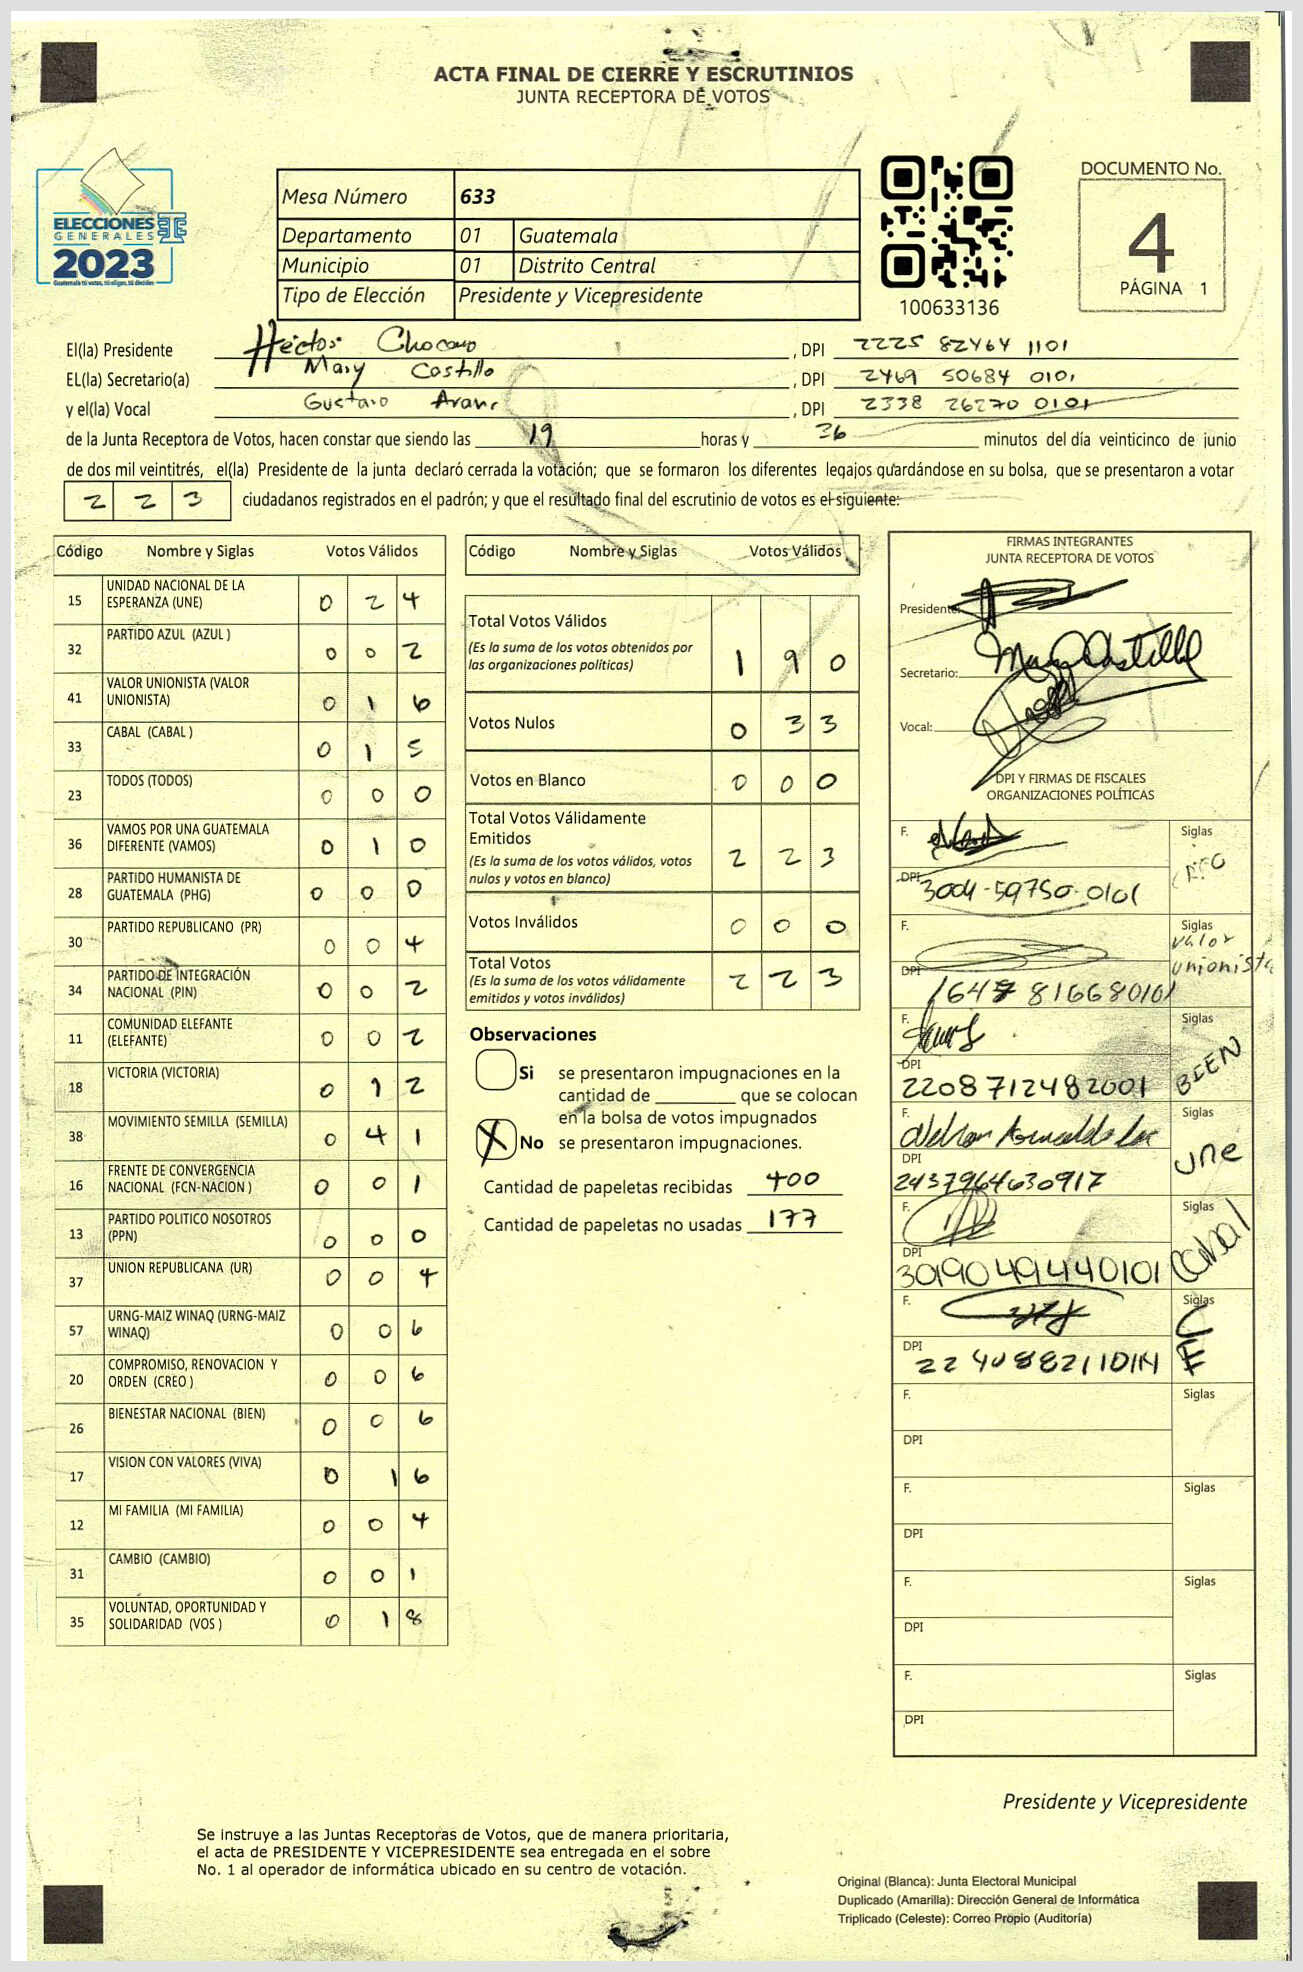 ACTA FINAL DE CIERRE Y ESCRUTINIOS
JUNTA RECEPTORA DE VOTOS
ELECCIONES
GENERALES
2023
Mesa Número 633
Departamento 01 Guatemala
Municipio 01 Distrito Central
Tipo de Elección Presidente y Vicepresidente
100633136
DOCUMENTO No.
4
PÁGINA 1
El(la) Presidente Héctor Chocano, DPI 2225 82464 1101
EL(la) Secretario(a) Mary Castillo, DPI 2469 50684 0101
y el(la) Vocal Gustavo, DPI 2338 26270 0101
de la Junta Receptora de Votos, hacen constar que siendo las 19 horas y 36 minutos del día veinticinco de junio
de dos mil veintitrés, el(la) Presidente de la junta declaró cerrada la votación; que se formaron los diferentes legajos guardándose en su bolsa, que se presentaron a votar
2 2 3 ciudadanos registrados en el padrón; y que el resultado final del escrutinio de votos es el siguiente:
Código Nombre y Siglas Votos Válidos
15 UNIDAD NACIONAL DE LA
ESPERANZA (UNE) 0 2 4
32 PARTIDO AZUL (AZUL ) 0 0 2
41 VALOR UNIONISTA (VALOR
UNIONISTA) 0 1 6
33 CABAL (CABAL ) 0 1 5
23 TODOS (TODOS) 0 0 0
36 VAMOS POR UNA GUATEMALA
DIFERENTE (VAMOS) 0 1 0
28 PARTIDO HUMANISTA DE
GUATEMALA (PHG) 0 0 0
30 PARTIDO REPUBLICANO (PR) 0 0 4
34 PARTIDO DE INTEGRACIÓN
NACIONAL (PIN) 0 0 2
11 COMUNIDAD ELEFANTE
(ELEFANTE) 0 0 2
18 VICTORIA (VICTORIA) 0 1 2
38 MOVIMIENTO SEMILLA (SEMILLA) 0 4 1
16 FRENTE DE CONVERGENCIA
NACIONAL (FCN-NACION ) 0 0 1
13 PARTIDO POLITICO NOSOTROS
(PPN) 0 0 0
37 UNION REPUBLICANA (UR) 0 0 4
57 URNG-MAIZ WINAQ (URNG-MAIZ
WINAQ) 0 0 6
20 COMPROMISO, RENOVACION Y
ORDEN (CREO ) 0 0 6
26 BIENESTAR NACIONAL (BIEN) 0 0 6
17 VISION CON VALORES (VIVA) 0 1 6
12 MI FAMILIA (MI FAMILIA) 0 0 4
31 CAMBIO (CAMBIO) 0 0 1
35 VOLUNTAD, OPORTUNIDAD Y
SOLIDARIDAD (VOS ) 0 1 8
Código Nombre y Siglas Votos Válidos
Total Votos Válidos
(Es la suma de los votos obtenidos por
las organizaciones políticas) 1 9 0
Votos Nulos 0 3 3
Votos en Blanco 0 0 0
Total Votos Válidamente
Emitidos
(Es la suma de los votos válidos, votos
nulos y votos en blanco) 2 2 3
Votos Inválidos 0 0 0
Total Votos
(Es la suma de los votos válidamente
emitidos y votos inválidos) 2 2 3
Observaciones
Si se presentaron impugnaciones en la
cantidad de ________ que se colocan
en la bolsa de votos impugnados
X No se presentaron impugnaciones.
Cantidad de papeletas recibidas 400
Cantidad de papeletas no usadas 177
FIRMAS INTEGRANTES
JUNTA RECEPTORA DE VOTOS
Presidente:
Secretario: Mary Castillo
Vocal:
DPI Y FIRMAS DE FISCALES
ORGANIZACIONES POLÍTICAS
F. Siglas
DPI 3004-59750-0101
F. Siglas
Valor
Unionista
DPI 1647 816680101
F. Siglas
BIEN
DPI
2208712482001
F. Siglas
UNE
DPI
2437964630917
F. Siglas
Cabal
DPI
3019049440101
F. Siglas
DPI
F. Siglas
DPI
F. Siglas
DPI
F. Siglas
DPI
F. Siglas
DPI
Presidente y Vicepresidente
Se instruye a las Juntas Receptoras de Votos, que de manera prioritaria,
el acta de PRESIDENTE Y VICEPRESIDENTE sea entregada en el sobre
No. 1 al operador de informática ubicado en su centro de votación.
Original (Blanca): Junta Electoral Municipal
Duplicado (Amarilla): Dirección General de Informática
Triplicado (Celeste): Correo Propio (Auditoría)